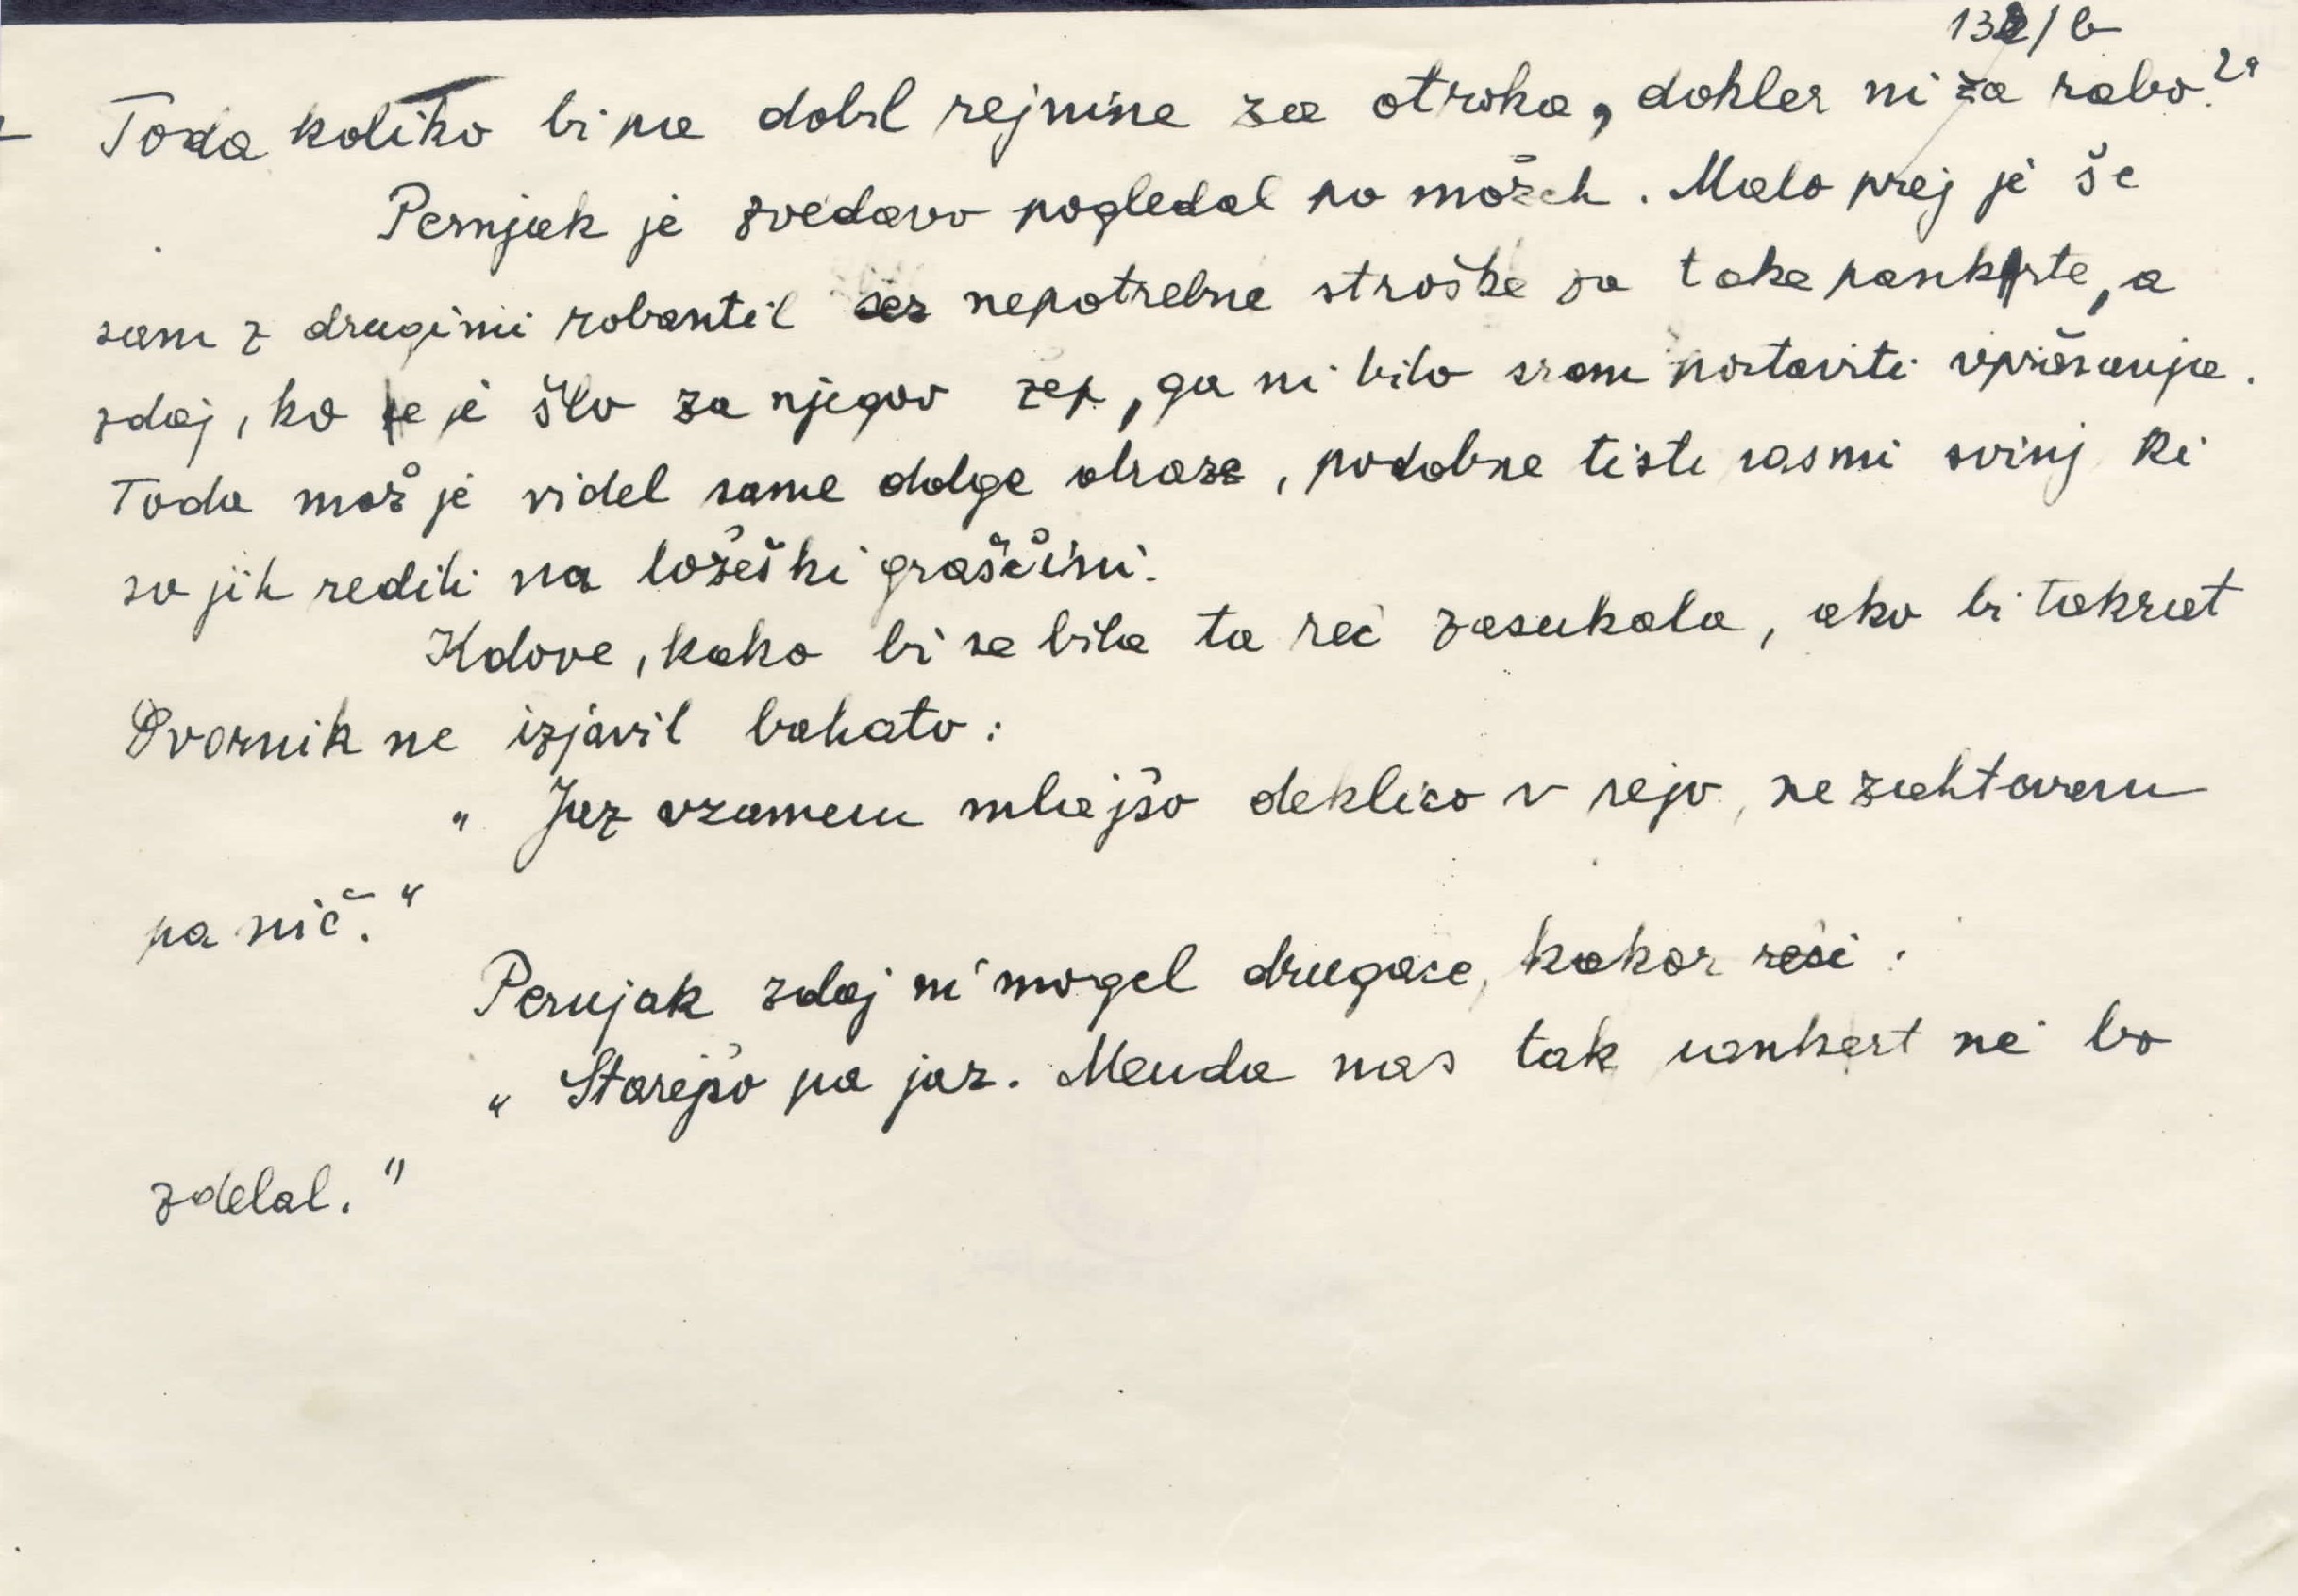 132/b
Toda koliko bi pa dobil rejnine za otroka, dokler ni za rabo?"
Pernjak je zvedavo pogledal po možeh. Malo prej je še
sam z drugimi robantil čez nepotrebne stroške za take pankrte, a
zdaj, ko je šlo za njegov žep, ga ni bilo sram postaviti vprašanja.
Toda mož je videl same dolge obraze, podobne tisti pasmi svinj ki
so jih redili na ložeški graščini.
Kdove, kako bi se bila ta reč zasukala, ako bi takrat
Dvornik ne izjavil bahato:
" Jaz vzamem mlajšo deklico v rejo, ne zahtevam
pa nič."
Pernjak zdaj ni mogel drugače, kakor reči:
" Starejšo pa jaz. Menda nas tak pankert ne bo
zdelal."